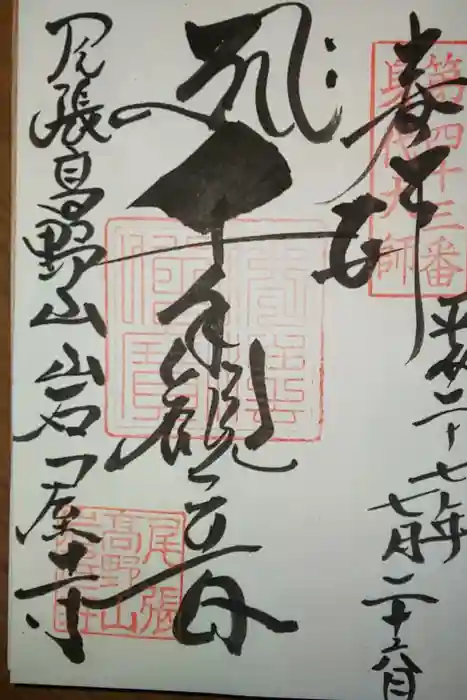 奉拝
第四十三番
身代大師
平成二十七年七月二十六日
千手観音
尾張高野山岩屋寺
尾張
高野山